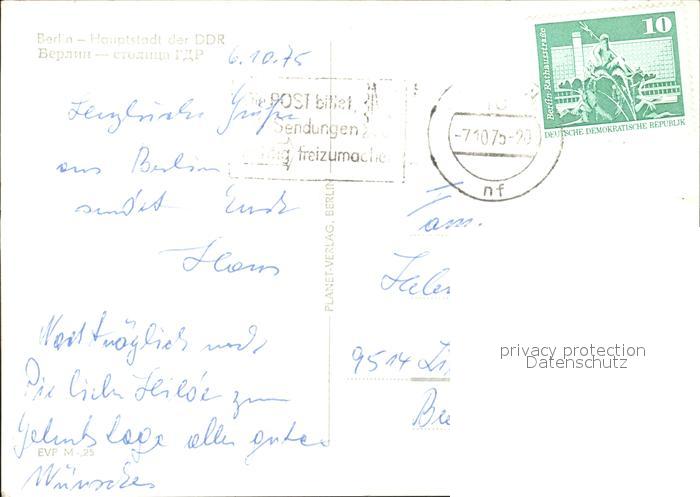 Berlin – Hauptstadt der DDR
Берлин — столица ГДР
6.10.75
Die POST bittet,
Sendungen
freizumachen
10
Berlin, Rathausstraße
DEUTSCHE DEMOKRATISCHE REPUBLIK
-7.10.75-20
nf
Herzliche Grüße
aus Berlin
sendet Euch
Hans
Nachträglich noch
Dir liebe Hilde zum
Geburtstage alles guten
Wünsches
Fam.
9514
PLANET-VERLAG, BERLIN
EVP M -,25
privacy protection
Datenschutz